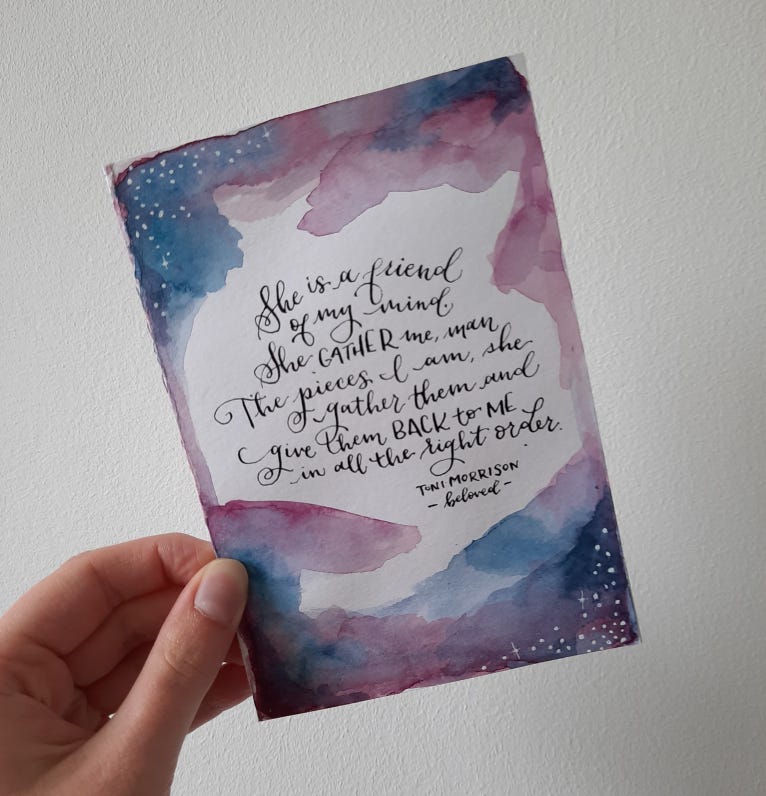 She is a friend
of my mind
She GATHER me, man
The pieces I am, she
gather them and
give them BACK to ME
in all the right order.
TONI MORRISON
- beloved -